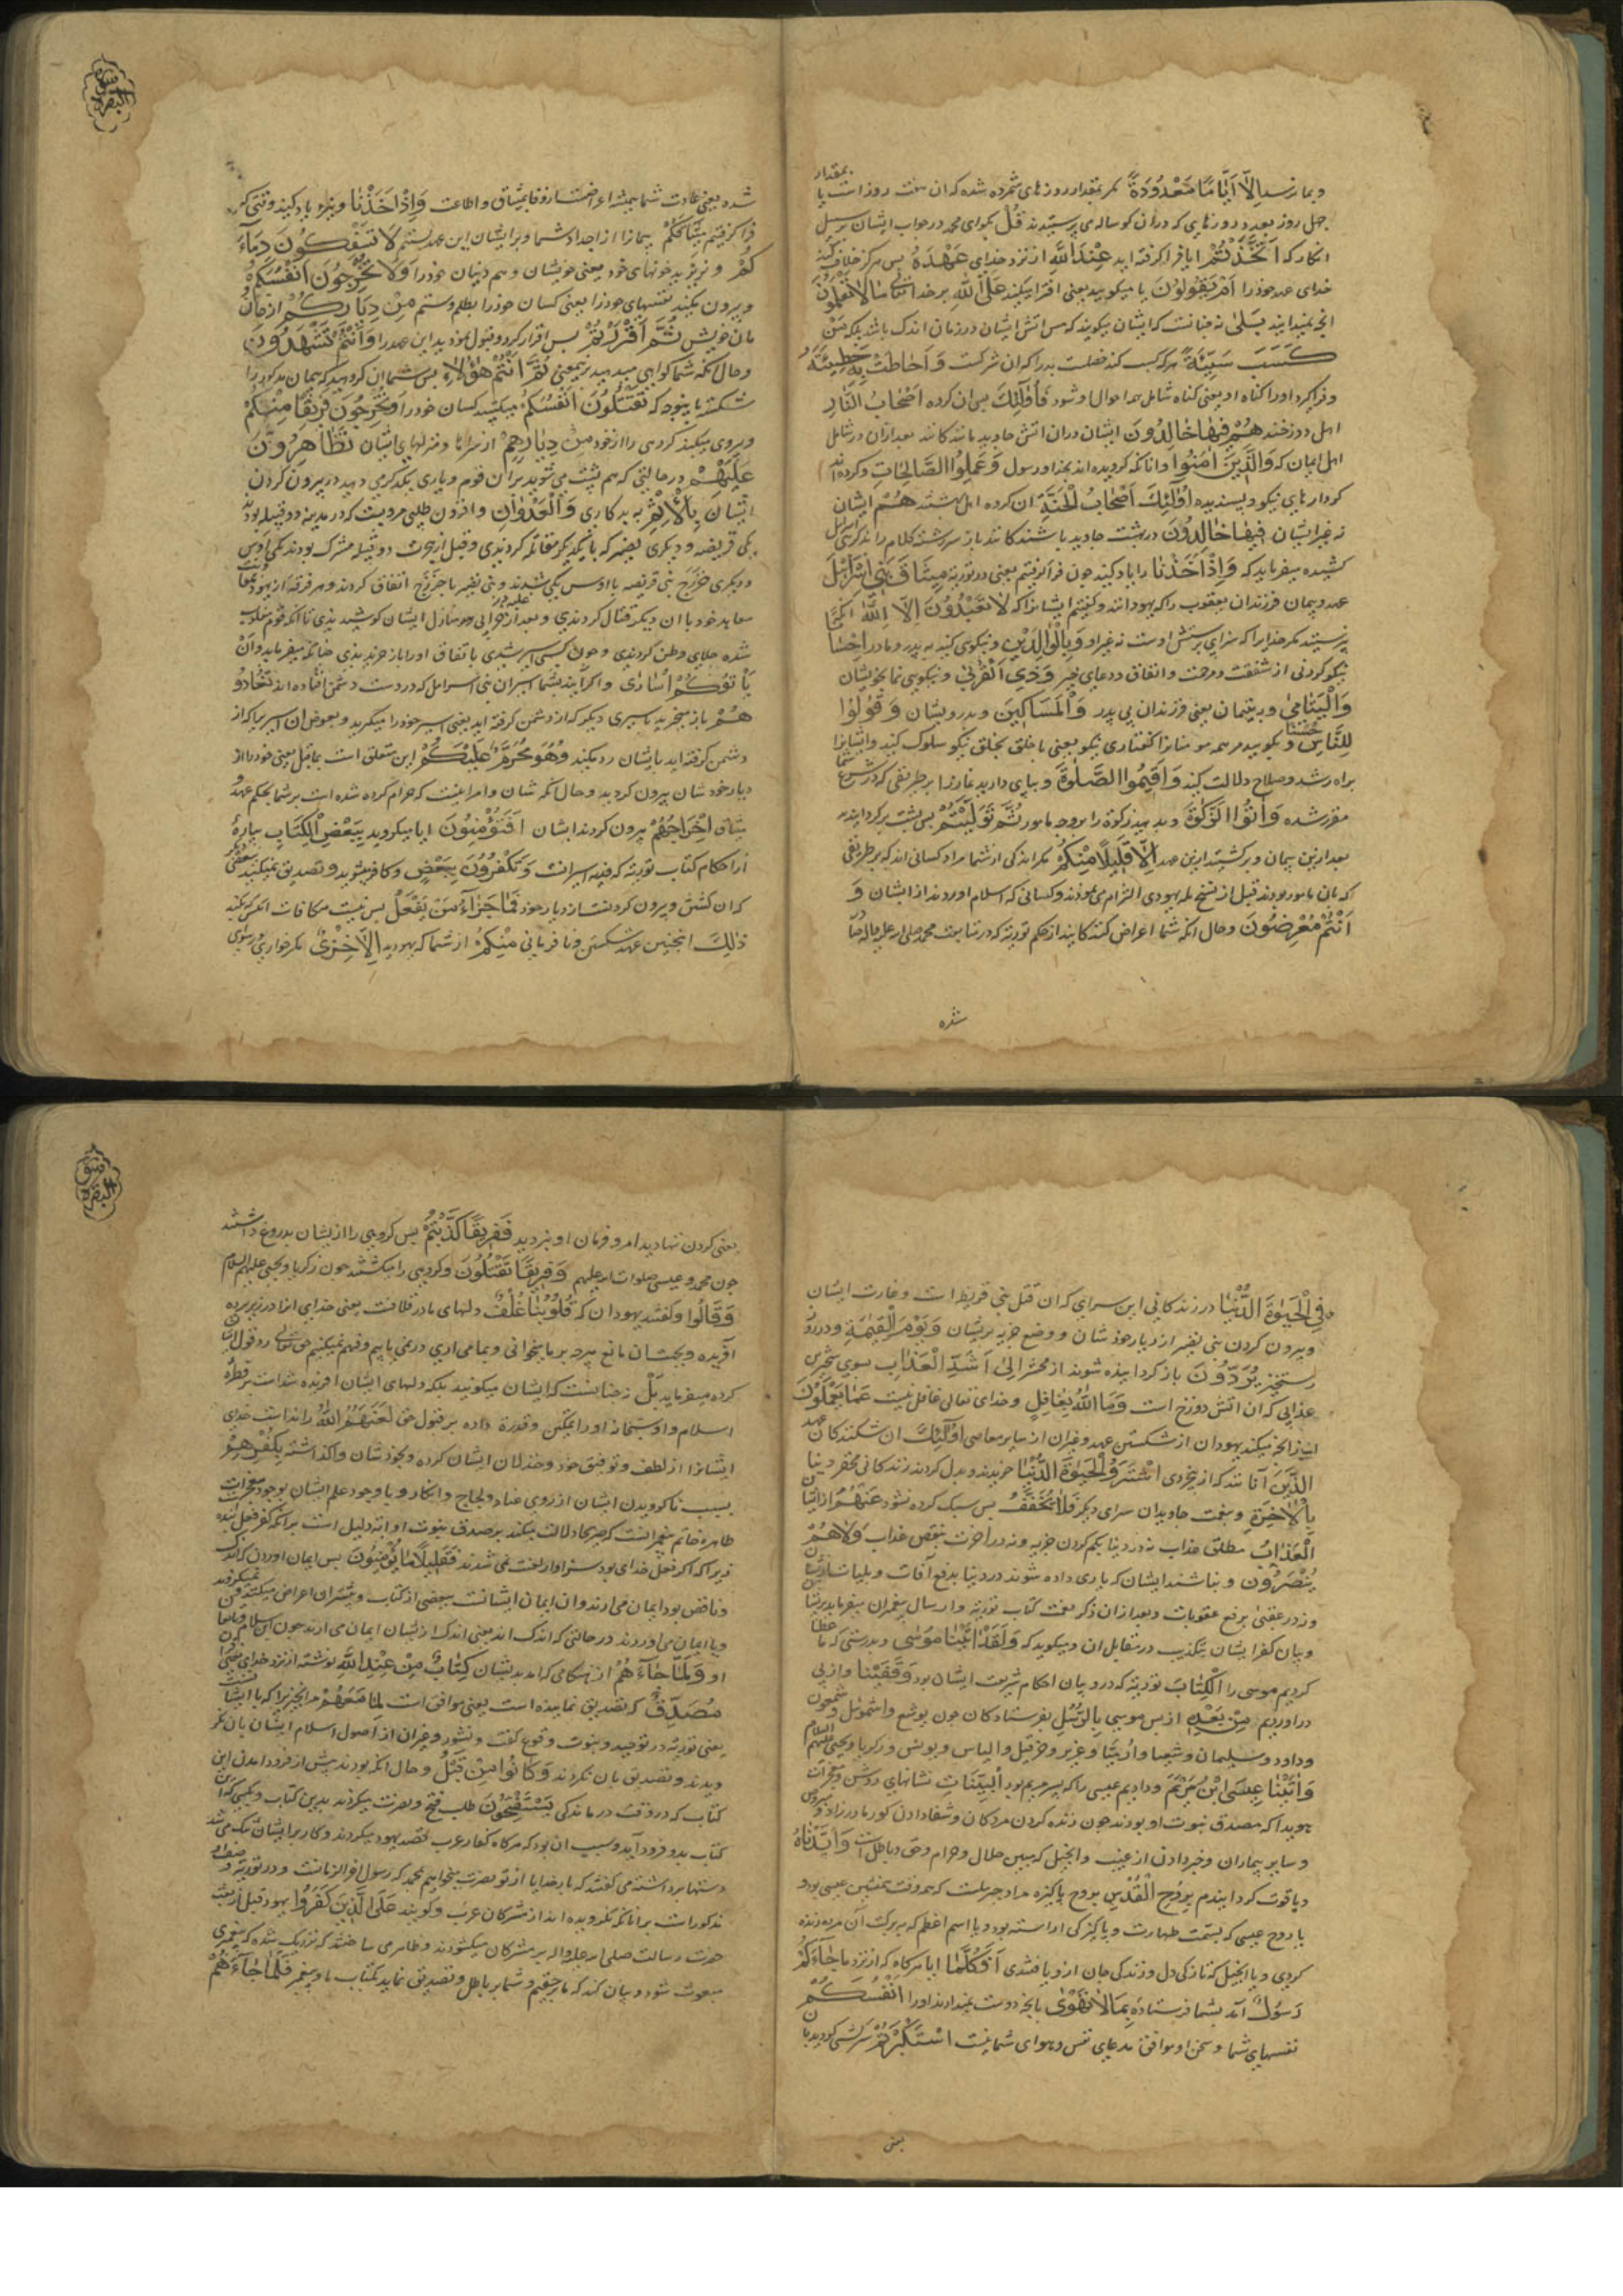 بمقدار
و بما نرسد اِلَّا اَيَّامًا مَعْدُودَةً مکر بمقدار روزهای شمرده شده که آن هفت روز است یا
چهل روز بعدد روزهایی که در آن کوساله می پرستیدند قُلْ بکوای محمد در جواب ایشان بر سبیل
انکار که اَتَّخَذْتُمْ ایا فرا کرفته اید عِنْدَ اللّٰهِ از نزد خدای عَهْدًا پس هرکز خلاف نکند
خدای عهد خود را اَمْ تَقُولُونَ یا میکویید یعنی افترا میکنید عَلَى اللّٰهِ بر خدا مَا لَا تَعْلَمُونَ
انچه نمیدانید بَلٰى نه چنانست که ایشان میکویند که مس اتش ایشان در زمان اندک باشد بلکه مَنْ
كَسَبَ سَيِّئَةً هر که کسب کند خصلت بد را که آن شرکت وَاَحَاطَتْ بِهِ خَطِيئَتُهُ
و فرا کیرد او را کناه او یعنی کناه شامل همه احوال او شود فَاُولٰئِكَ پس آن کروه اَصْحَابُ النَّارِ
اهل دوزخند هُمْ فِيهَا خَالِدُونَ ایشان در ان اتش جاوید مانند کانند بعد از آن در شامل
اهل ایمان که وَالَّذِينَ اٰمَنُوا و انانکه کرویده اند بخدا و رسول وَعَمِلُوا الصَّالِحَاتِ و کرده اند
کردارهای نیکو و پسندیده اُولٰئِكَ اَصْحَابُ الْجَنَّةِ آن کروه اهل بهشتند هُمْ ایشان
نه غیر ایشان فِيهَا خَالِدُونَ در بهشت جاوید باشند کانند باز سر رشته کلام را
کشیده میفرماید که وَاِذْ اَخَذْنَا و یاد کنید چون فرا کرفتیم یعنی در توریة مِيثَاقَ بَنِي اِسْرَائِيلَ
عهد و پیمان فرزندان یعقوب را که یهودانند و کفتیم ایشانرا که لَا تَعْبُدُونَ اِلَّا اللّٰهَ
نپرستید مکر خدایرا که سزای پرستش اوست نه غیر او وَبِالْوَالِدَيْنِ و نیکویی کنید به پدر و مادر اِحْسَانًا
نیکو کردنی از شفقت و مرحمت و انفاق و دعای خیر وَذِي الْقُرْبٰى و نیکویی نما بخویشان
وَالْيَتَامٰى و به یتیمان یعنی فرزندان بی پدر وَالْمَسَاكِينِ و بدرویشان وَقُولُوا
لِلنَّاسِ حُسْنًا و بکویید مر همه مومنانرا کفتاری نیکو یعنی با خلق بخلق نیکو سلوک کنید و ایشانرا
براه رشد و صلاح دلالت کنید وَاَقِيمُوا الصَّلٰوةَ و بپای دارید نماز را بر طریقی که در شرع شما
مقرر شده وَاٰتُوا الزَّكٰوةَ و بدهید زکوة را بر وجه مامور ثُمَّ تَوَلَّيْتُمْ پس پشت بر کردانیدید
بعد از این پیمان و برکشتید ازین عهد اِلَّا قَلِيلًا مِنْكُمْ مکر اندکی از شما مراد کسانی اند که بر طریقی
که بان مامور بودند قبل از نسخ مله یهودی التزام می نمودند و کسانی که اسلام اوردند از ایشان وَ
اَنْتُمْ مُعْرِضُونَ و حال انکه شما اعراض کنندکانید از حکم توریة که در متابعت محمد صلی الله علیه و آله
شده
سورة البقرة
شده یعنی عادت شما همیشه اعراضست از وفا بمیثاق و اطاعت وَاِذْ اَخَذْنَا و نیز یاد کنید وقتی که
فرا کرفتیم مِيثَاقَكُمْ پیمانرا از اجداد شما و بر ایشان این عهد بستیم لَا تَسْفِكُونَ دِمَاءَ
كُمْ و نریزید خونهای خود یعنی خویشان و هم دینان خود را وَلَا تُخْرِجُونَ اَنْفُسَكُمْ
و بیرون نکنید نفسهای خود را یعنی کسان خود را بظلم و ستم مِنْ دِيَارِكُمْ از خان
مان خویش ثُمَّ اَقْرَرْتُمْ پس اقرار کردید و قبول نمودید این عهد را وَاَنْتُمْ تَشْهَدُونَ
و حال انکه شما کواهی میدهید ثُمَّ اَنْتُمْ هٰؤُلَاءِ پس شما آن کروهید که پیمان مذکور را
شکسته باینوجه که تَقْتُلُونَ اَنْفُسَكُمْ میکشید کسان خود را وَتُخْرِجُونَ فَرِيقًا مِنْكُمْ
و بیرون میکنید کروهی را از خود مِنْ دِيَارِهِمْ از سراها و منزلهای ایشان تَظَاهَرُونَ
عَلَيْهِمْ در حالتی که هم پشت می شوید بر آن قوم و یاری یکدکر می دهید در بیرون کردن
ایشان بِالْاِثْمِ به بدکاری وَالْعُدْوَانِ و افزون طلبی مرویست که در مدینه دو قبیله بودند
یکی قریظه و دیکری نضیر که با یکدیکر مقاتله کردندی و قبل از هجرت دو قبیله مشرک بودند یکی اوس
و دیکری خزرج بنی قریظه با اوس یکی شدند و بنی نضیر با خزرج اتفاق کردند و هر فرقه از یهود
معاهد خود با ان دیکر قتال کردندی و بعد از غلبه در خرابی منازل ایشان کوشیدندی تا آنکه قوم مغلوب
شده جلای وطن کردندی و چون کسی اسیر شدی باتفاق او را باز خریدندی چنانکه میفرماید وَاِنْ
يَاْتُوكُمْ اُسَارٰى و اکر آیند بشما اسیران بنی اسرائیل که در دست دشمن افتاده اند تُفَادُو
هُمْ باز میخرید باسیری دیکر که از دشمن کرفته اید یعنی اسیر خود را میکیرید و بعوض ان اسیر را که از
دشمن کرفته اید بایشان رد میکنید وَهُوَ مُحَرَّمٌ عَلَيْكُمْ این متعلق است بماقبل یعنی خود را از
دیار خودشان بیرون کردید و حال آنکه شان و امر اینست که حرام کرده شده است بر شما بحکم عهد
میثاق اِخْرَاجُهُمْ بیرون کردن ایشان اَفَتُؤْمِنُونَ ایا میکروید بِبَعْضِ الْكِتَابِ بپارهٔ
از احکام کتاب توریة که فدیه اسیرانست وَتَكْفُرُونَ بِبَعْضٍ و کافر میشوید و تصدیق نمیکنید ببعضی
که آن کشتن و بیرون کردنست از دیار خود فَمَا جَزَاءُ مَنْ يَفْعَلُ پس نیست مکافات انکس که بکند
ذٰلِكَ اینچنین عهد شکستن و نافرمانی مِنْكُمْ از شما که یهودید اِلَّا خِزْيٌ مکر خواری و رسوایی
فِي الْحَيٰوةِ الدُّنْيَا در زندکانی این سرای که ان قتل بنی قریظه است و غارت ایشان
و بیرون کردن بنی نضیر از دیار خودشان و وضع جزیه بریشان وَيَوْمَ الْقِيٰمَةِ و در روز
رستخیز يُرَدُّونَ باز کردانیده شوند از محشر اِلٰى اَشَدِّ الْعَذَابِ بسوی سخترین
عذابی که ان اتش دوزخ است وَمَا اللّٰهُ بِغَافِلٍ و خدای تعالی غافل نیست عَمَّا يَعْمَلُونَ
از انچه میکنند یهودان از شکستن عهد و غیر ان از سایر معاصی اُولٰئِكَ ان شکنندکان عهد
الَّذِينَ آنانند که از بیخردی اشْتَرَوُا الْحَيٰوةَ الدُّنْيَا خریدند و بدل کردند زندکانی محقر دنیا
بِالْاٰخِرَةِ و بنعمت جاویدان سرای دیکر فَلَا يُخَفَّفُ پس سبک کرده نشود عَنْهُمُ از ایشان
الْعَذَابُ مطلق عذاب نه در دنیا بکم کردن جزیه و نه در اخرت بنقص عذاب وَلَا هُمْ
يُنْصَرُونَ و نباشند ایشان که یاری داده شوند در دنیا بدفع افات و بلیات
و نه در عقبی برفع عقوبات و بعد از ان ذکر نعمت کتاب توریة و ارسال پیغمبران میفرماید
و بیان کفر ایشان بتکذیب در مقابل ان و میکوید که وَلَقَدْ اٰتَيْنَا مُوسٰى و بدرستی که ما عطا
کردیم موسی را الْكِتَابَ توریة که در و بیان احکام شریعت ایشان بود وَقَفَّيْنَا و از پی
در اوردیم مِنْ بَعْدِهِ از پس موسی بِالرُّسُلِ بفرستادکان چون یوشع و اشموئیل و شمعون
و داود و سلیمان و شعیا و ارمیا و عزیر و حزقیل و الیاس و یونس و زکریا و یحیی علیهم السلام
وَاٰتَيْنَا عِيسَى ابْنَ مَرْيَمَ و دادیم عیسی را که پسر مریم بود الْبَيِّنَاتِ نشانهای روشن و معجزات
هویدا که مصدق نبوت او بودند چون زنده کردن مردکان و شفا دادن کور مادرزاد و مبروص
و سایر بیماران و خبر دادن از غیب و انجیل که مبین حلال و حرام و حق و باطل است وَاَيَّدْنَاهُ
و با قوت کردانیدیم بِرُوحِ الْقُدُسِ بروح پاکیزه مراد جبرئیلست که همه وقت همنشین عیسی بود و
یا روح عیسی که بسمت طهارت و پاکیزکی اراسته بود و یا اسم اعظم که ببرکت آن مرده زنده
کردی و یا انجیل که تازکی دل و زندکی جان ازو یافتندی اَفَكُلَّمَا ایا هرکاه که از نزد ما جَاءَكُمْ
رَسُولٌ آمد بشما فرستادهٔ بِمَا لَا تَهْوٰى بانچه دوست نمیدارند اورا اَنْفُسُكُمُ
نفسهای شما و سخن او موافق مدعای نفس و هوای شما نیست اسْتَكْبَرْتُمْ سرکشی کردید با
یعنی
سورة البقرة
یعنی کردن ننهادید امر و فرمان او نبردید فَفَرِيقًا كَذَّبْتُمْ پس کروهی را از یشان بدروغ داشتند
چون محمد و عیسی صلوات الله علیهم وَفَرِيقًا تَقْتُلُونَ و کروهی را میکشتند چون زکریا و یحیی علیهم السلام
وَقَالُوا و کفتند یهودان که قُلُوبُنَا غُلْفٌ دلهای ما در غلافست یعنی خدای انرا در زیر پرده
آفریده و بجهت آن مانع هرچه بر ما میخوانی و بما می اری در نمی یابیم و فهم نمیکنیم حق تعالی رد قول ایشان
کرده میفرماید بَلْ نه چنانست که ایشان میکویند بلکه دلهای ایشان افریده شده است بر فطرة
اسلام و او سبحانه او را تمکین و قدرة داده بر قبول حق لَعَنَهُمُ اللّٰهُ رانده است خدای
ایشانرا از لطف و توفیق خود و خذلان ایشان کرده و بخودشان واکذاشته بِكُفْرِهِمْ
بسبب ناکرویدن ایشان از روی عناد و لجاج و انکار و با وجود علم ایشان بوجود معجزات
ظاهره خاتم پیغمبرانست که صریحا دلالت میکند بر صدق نبوت او و این دلیل است بر آنکه کفر فعل بنده
زیرا که اکر فعل خدای بود سزاوار لعنت نمی شدند فَقَلِيلًا مَا يُؤْمِنُونَ پس ایمان اوردن که اندک
و ناقص بود ایمان می ارند و ان ایمان ایشانست ببعضی از کتاب و بیشتر ان اعراض میکنند
و یا ایمان می اوردند در حالتی که اندک اند یعنی اندک از یشان ایمان می ارند چون ابن سلام و اتباع
او وَلَمَّا جَاءَهُمْ و ان هنکامی که امد بدیشان كِتَابٌ مِنْ عِنْدِ اللّٰهِ نوشته از نزد خدای یعنی قرآن
مُصَدِّقٌ که تصدیق نماینده است یعنی موافق است لِمَا مَعَهُمْ مر انچیزیرا که با ایشان است
یعنی توریة در توحید و نبوت و وقوع بعث و نشور و غیر ان از اصول اسلام ایشان بان نکر
ویدند و تصدیق بان نکردند وَكَانُوا مِنْ قَبْلُ و حال انکه بودند پیش از فرود امدن این
کتاب که در وقت درماندکی يَسْتَفْتِحُونَ طلب فتح و نصرت میکردند بدین کتاب و بکسی که این
کتاب بدو فرود آید و سبب ان بود که هرکاه کفار عرب قصد یهود میکردند و کار بر ایشان تنک می شد
دستها برداشته می کفتند که بار خدایا از تو نصرت میخواهیم بمحمد که رسول اخر الزمانست و در توریة
مذکور است بر انانکه نکرویده اند از مشرکان عرب و کویند عَلَى الَّذِينَ كَفَرُوا یهود قبل از بعثت
حضرت رسالت صلی الله علیه و آله بر مشرکان میکشودند و ظاهر می ساختند که نزدیک شده که پیغمبری
مبعوث شود و بیان کند که ما بر حقیم و شما بر باطل و تصدیق نماید بکتاب ما و پیغمبر فَلَمَّا جَاءَهُمْ